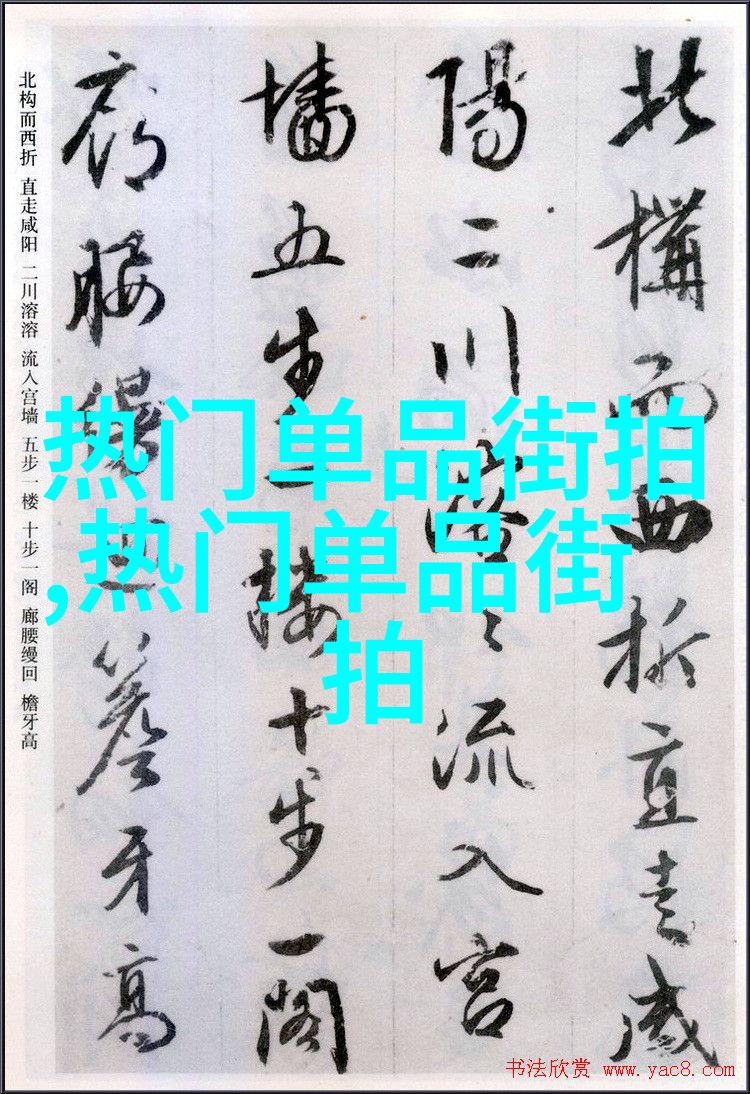 北構而西折直走咸
陽二川溶々流入宮
墻五步一樓十步一閣
廊腰縵回簷牙高
北构而西折 直走咸阳 二川溶溶 流入宫墙 五步一楼 十步一阁 廊腰缦回 檐牙高
热门单品街拍
,热门单品街
拍
书法欣赏 www.yac8.com